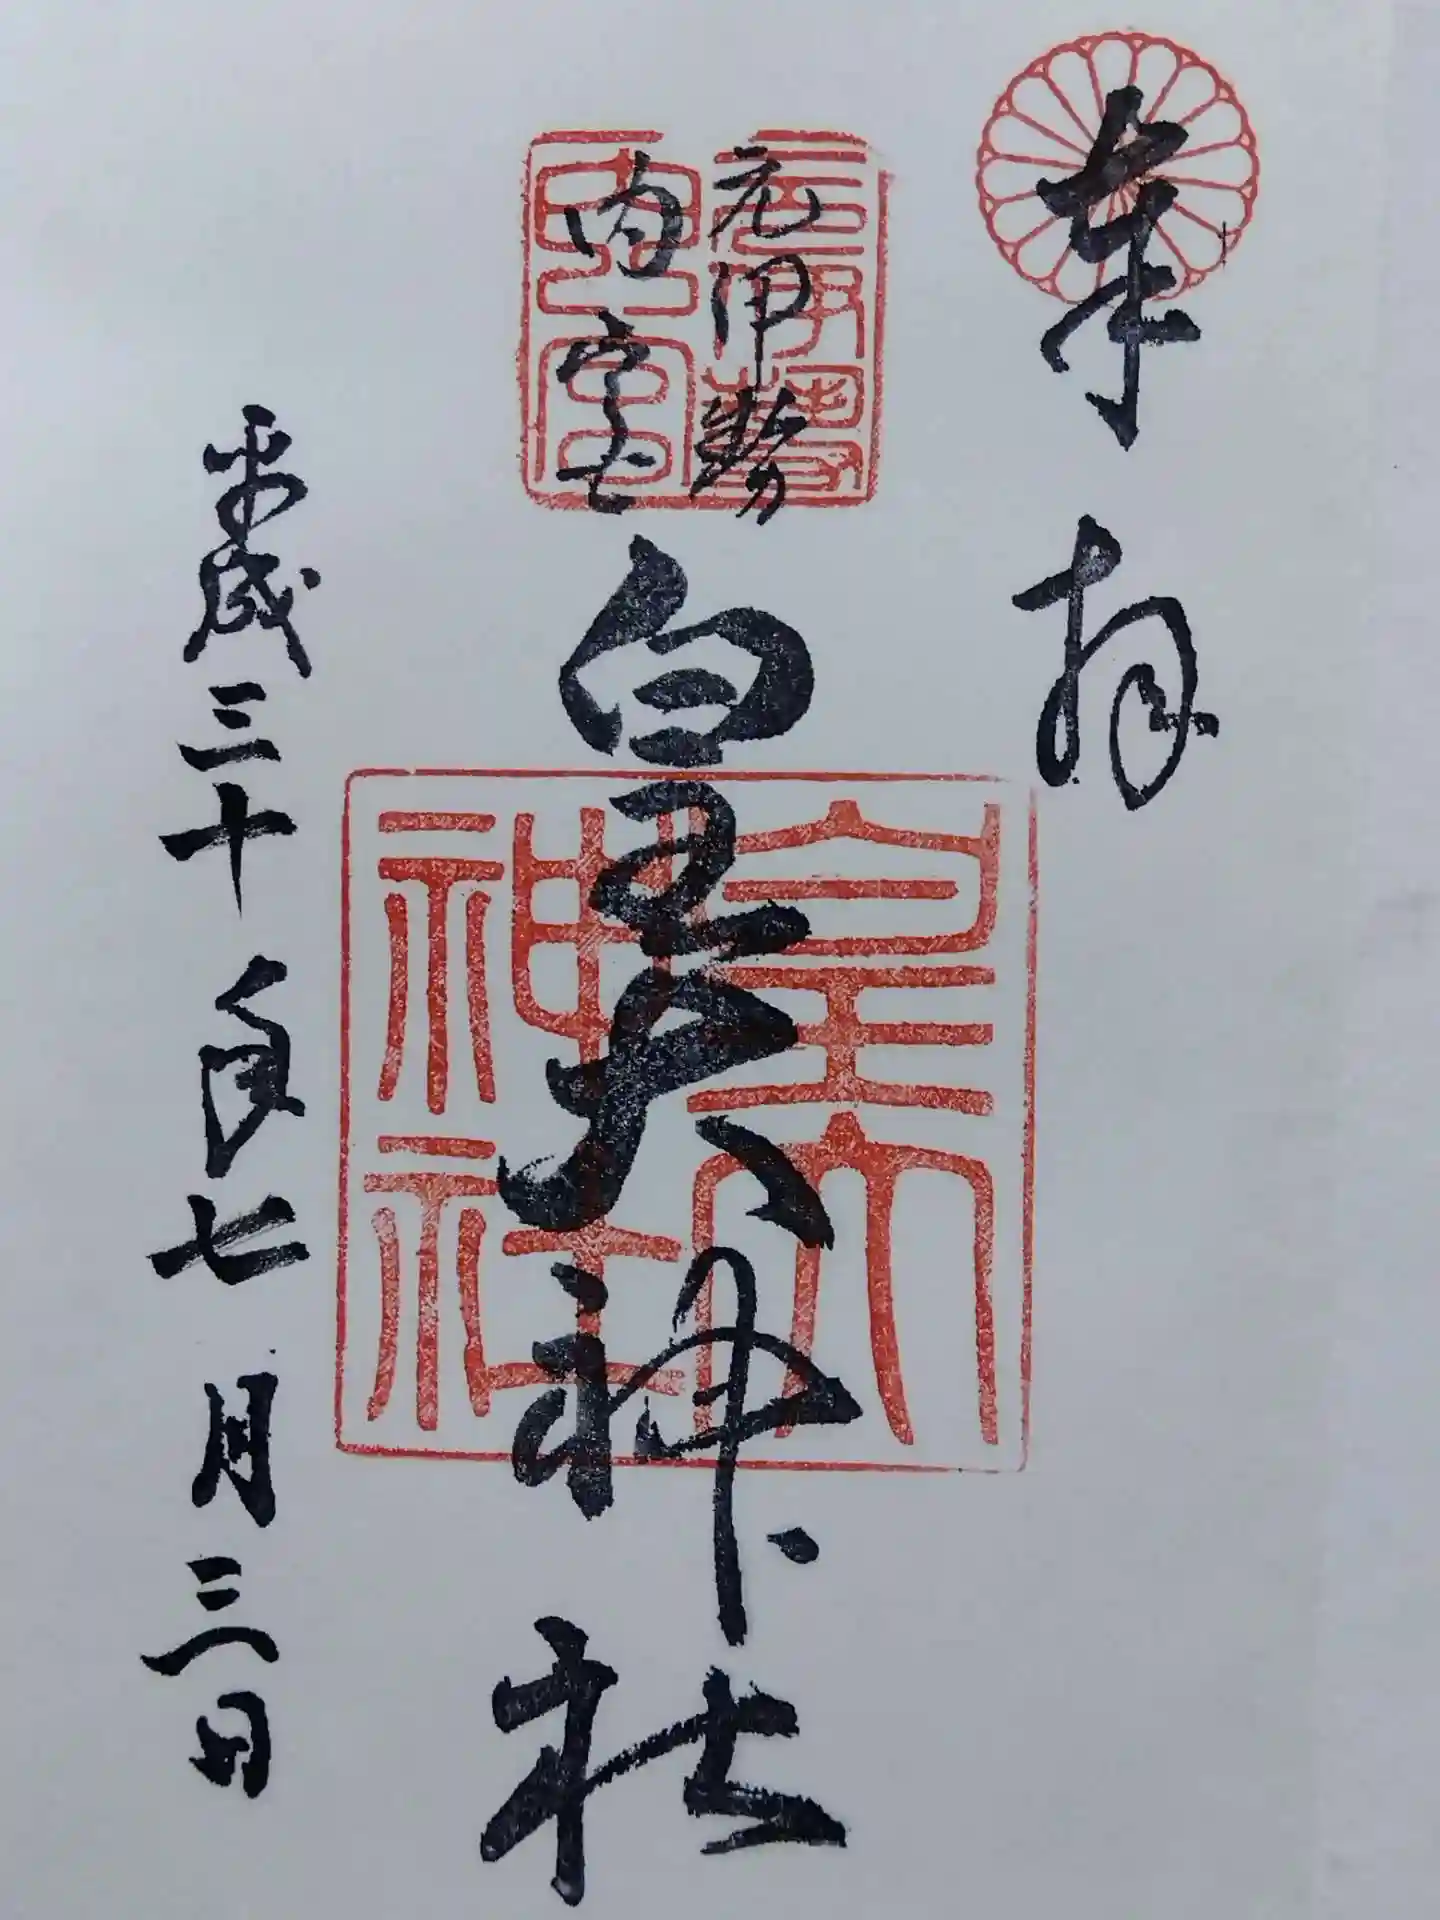 奉拝
元伊勢
内宮
皇大神社
平成三十年七月三日
元伊勢
内宮
皇大
神社